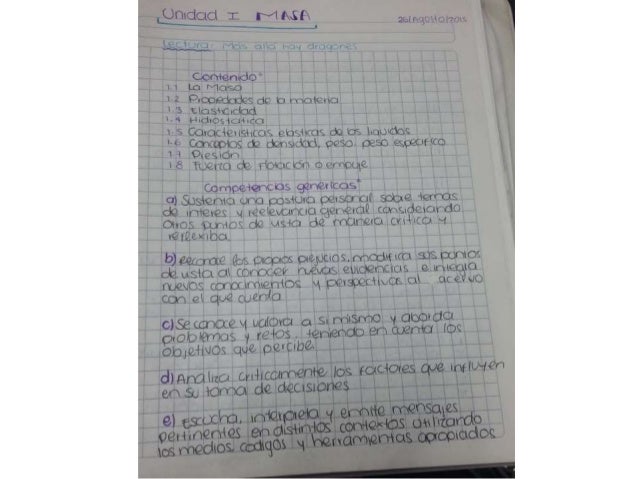 Unidad I MASA 26/Agosto/2015
Lectura: Mas alla hay dragones
Contenido"
1.1 La Masa
1.2 Propiedades de la materia
1.3 Elasticidad
1.4 Hidrostatica
1.5 Caracteristicas elasticas de los liquidos
1.6 Conceptos de densidad, peso, peso especifico
1.7 Presión
1.8 Fuerza de flotación o empuje
Competencias genericas"
a) Sustenta una postura personal sobre temas
de interes y reelevancia general considerando
otros puntos de vista de manera critica y
reflexiba.
b) reconoce los propios prejucios, modifica sus puntos
de vista al conocer nuevas evidencias e integra
nuevos conocimientos y perspectivas al acervo
con el que cuenta
c) Se conoce y valora a si mismo y aborda
problemas y retos teniendo en cuenta los
objetivos que percibe.
d) Analiza criticamente los factores que influyen
en su toma de decisiones
e) Escucha, interpreta y emite mensajes
pertinentes en distintos contextos utilizando
los medios, codigos y herramientas apropiados